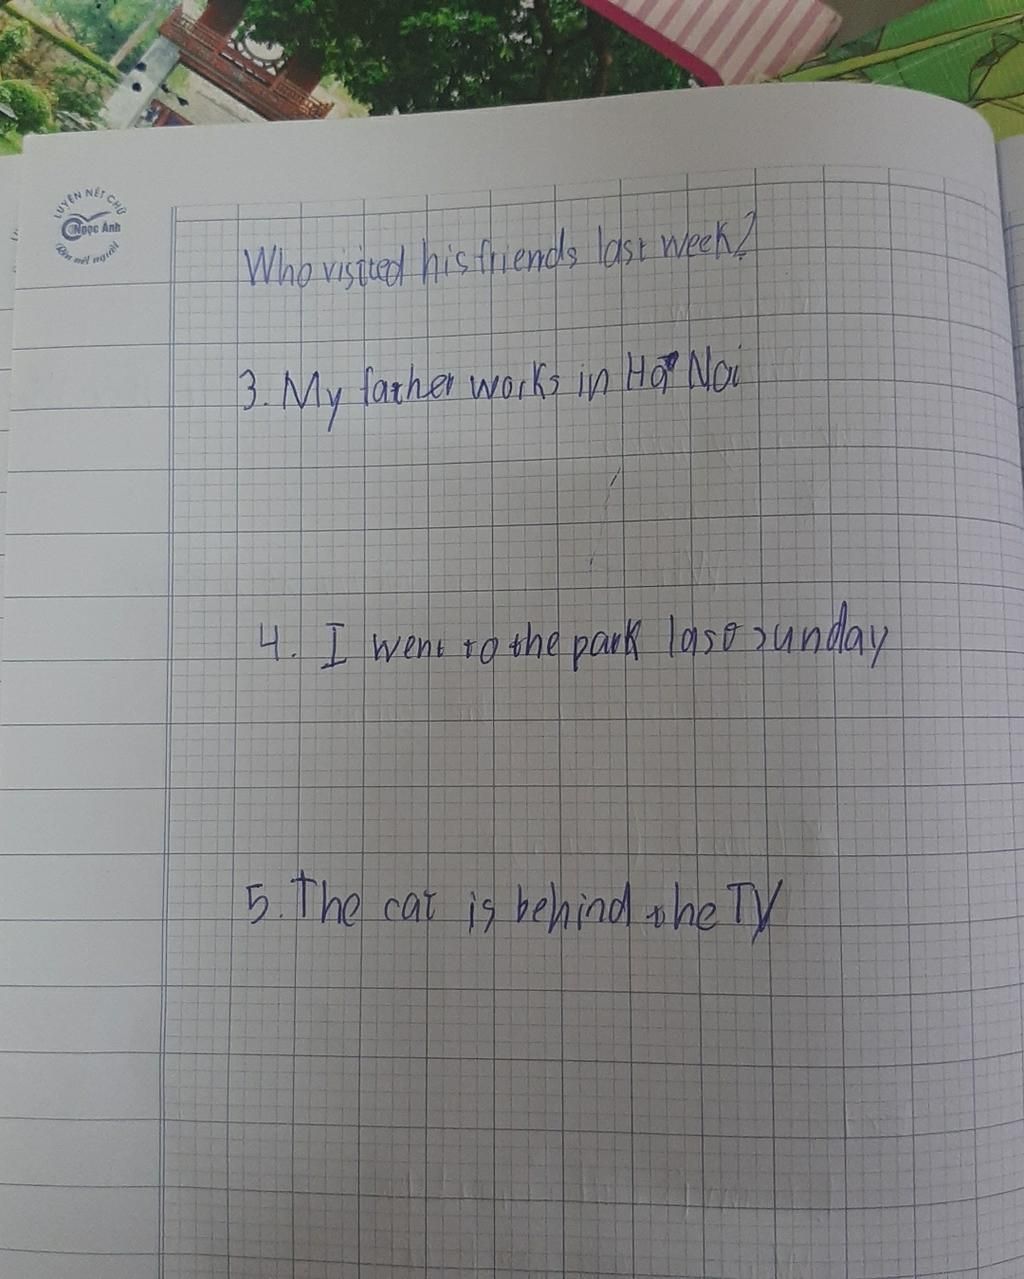 LUYỆN NÉT CHỮ
Ngọc Ánh
Rèn nết người
Who visited his friends last week?
3. My father works in Ha Noi
4. I went to the park last sunday
5. The cat is behind the TV